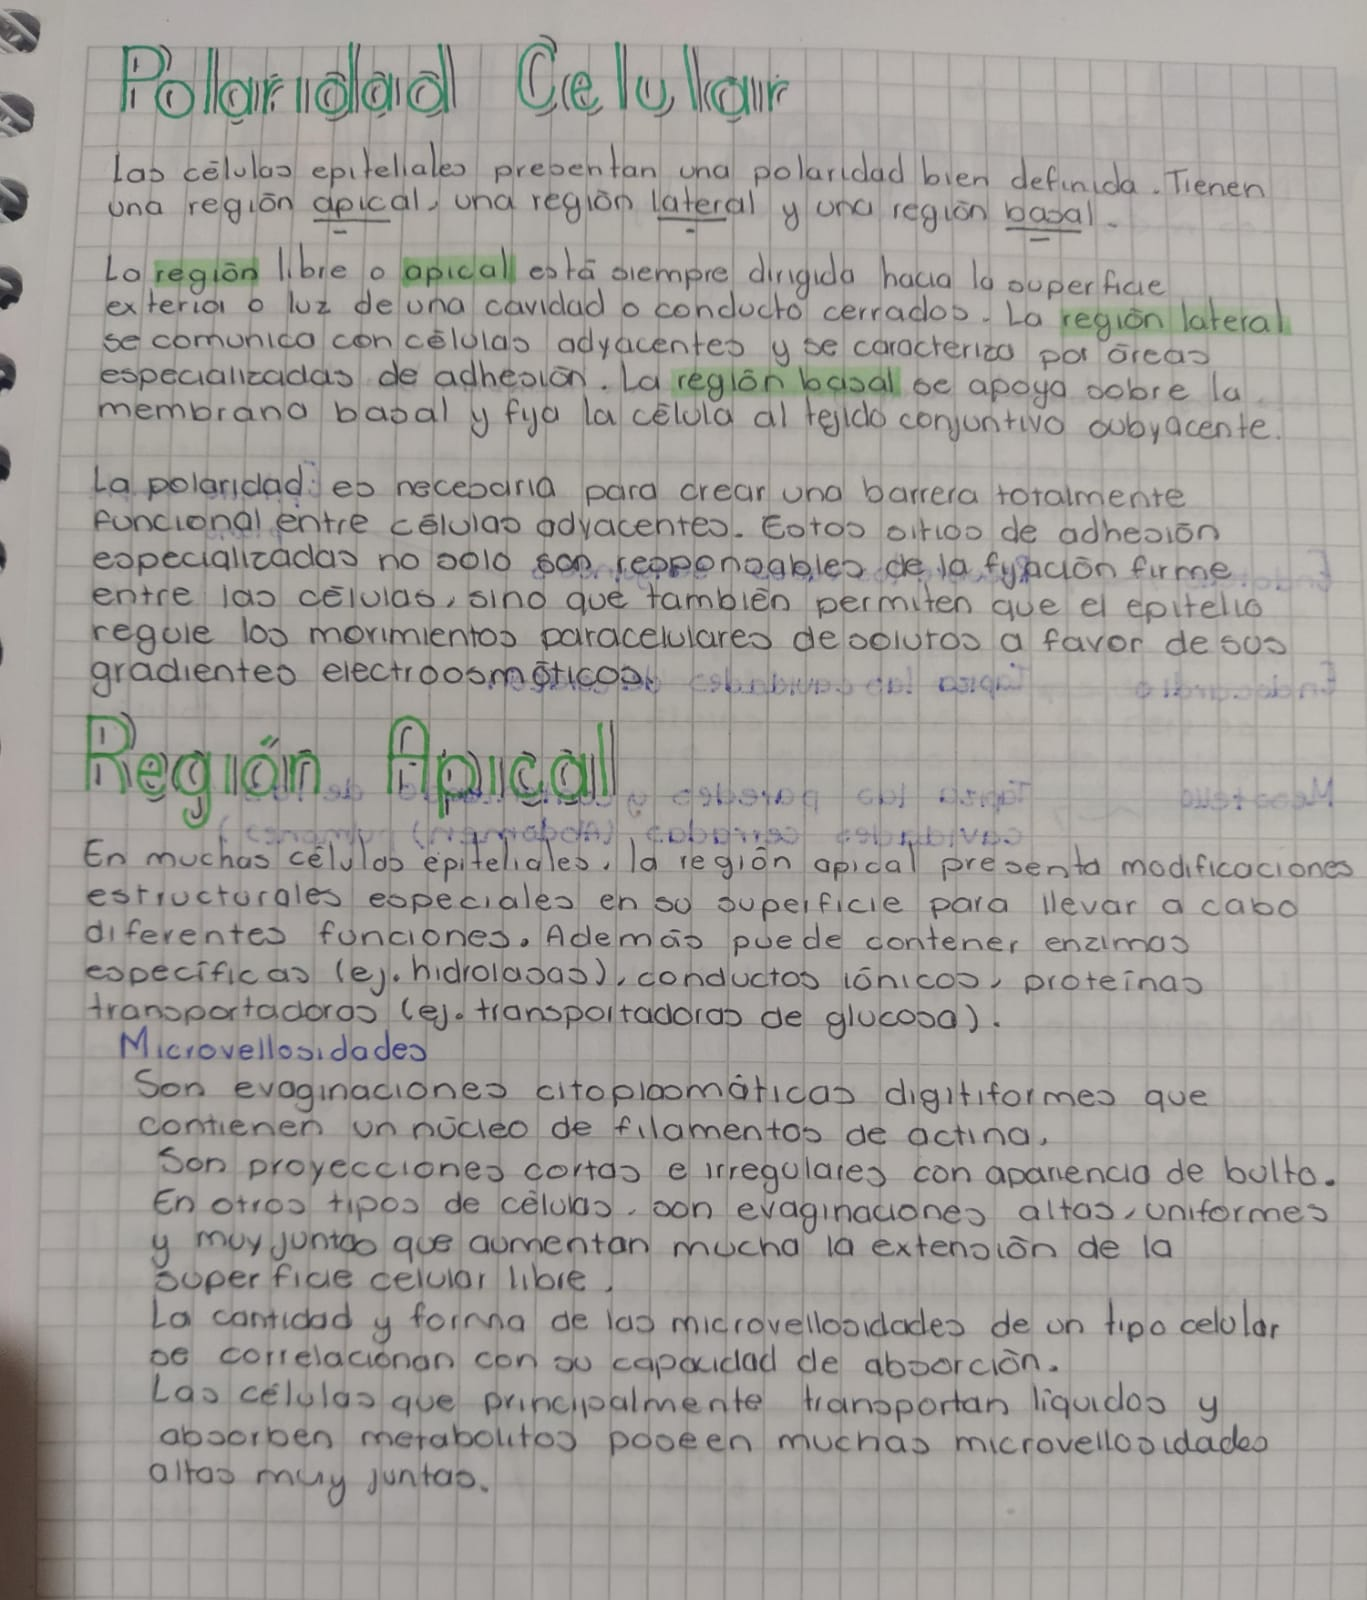 Polaridad Celular
Las células epiteliales presentan una polaridad bien definida. Tienen
una región apical, una región lateral y una región basal.
La región libre o apical está siempre dirigida hacia la superficie
exterior o luz de una cavidad o conducto cerrados. La región lateral
se comunica con células adyacentes y se caracteriza por áreas
especializadas de adhesión. La región basal se apoya sobre la
membrana basal y fija la célula al tejido conjuntivo subyacente.
La polaridad es necesaria para crear una barrera totalmente
funcional entre células adyacentes. Estos sitios de adhesión
especializadas no solo son responsables de la fijación firme
entre las células, sino que también permiten que el epitelio
regule los movimientos paracelulares de solutos a favor de sus
gradientes electroosmóticos.
Región Apical
En muchas células epiteliales, la región apical presenta modificaciones
estructurales especiales en su superficie para llevar a cabo
diferentes funciones. Además puede contener enzimas
específicas (ej. hidrolasas), conductos iónicos, proteínas
transportadoras (ej. transportadoras de glucosa).
Microvellosidades
Son evaginaciones citoplasmáticas digitiformes que
contienen un núcleo de filamentos de actina.
Son proyecciones cortas e irregulares con apariencia de bulto.
En otros tipos de células, son evaginaciones altas, uniformes
y muy juntas que aumentan mucha la extensión de la
superficie celular libre.
La cantidad y forma de las microvellosidades de un tipo celular
se correlacionan con su capacidad de absorción.
Las células que principalmente transportan líquidos y
absorben metabolitos poseen muchas microvellosidades
altas muy juntas.